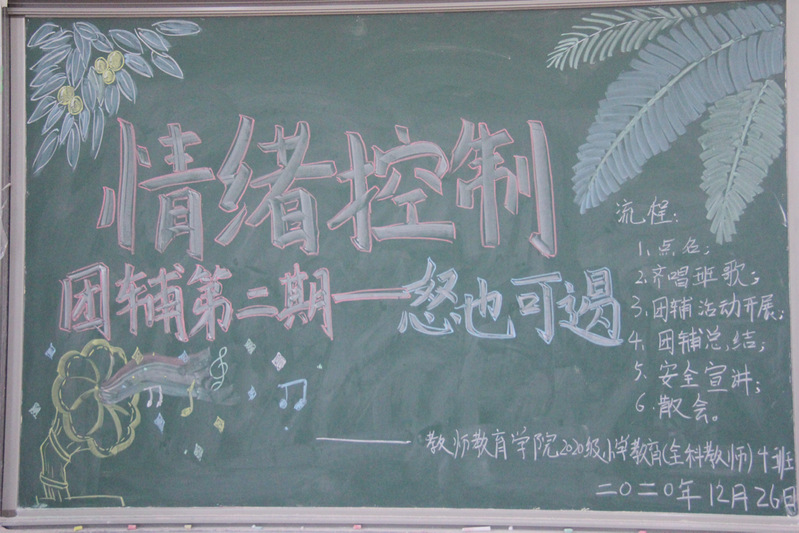 情绪控制
团辅第二期——怒也可遏
流程:
1.点名;
2.齐唱班歌;
3.团辅活动开展;
4.团辅总结;
5.安全宣讲;
6.散会。
——教师教育学院2020级小学教育(全科教师)十班
二〇二〇年12月26日